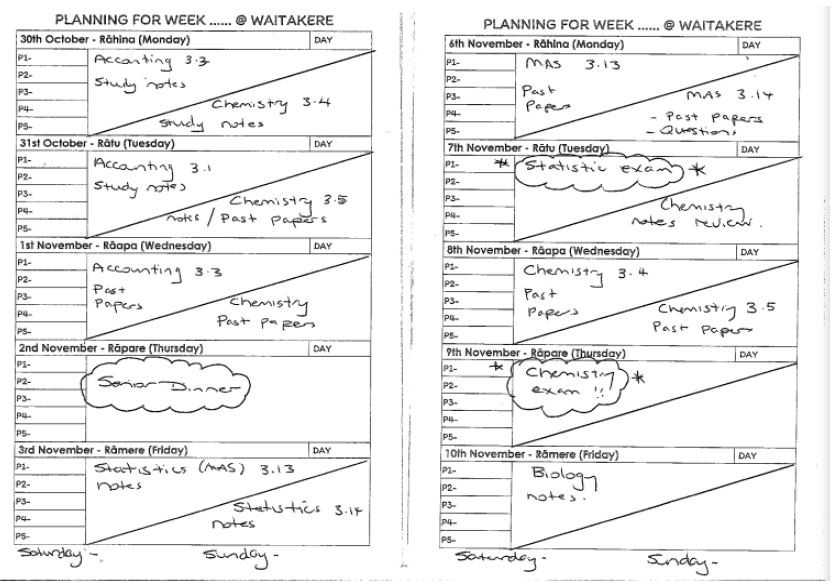 PLANNING FOR WEEK ...... @ WAITAKERE
30th October - Rāhina (Monday) DAY
P1-
P2-
P3-
P4-
P5-
Accounting 3.3
Study notes
Chemistry 3.4
Study notes
31st October - Rātu (Tuesday) DAY
P1-
P2-
P3-
P4-
P5-
Accounting 3.1
Study notes
Chemistry 3.5
notes / Past papers
1st November - Rāapa (Wednesday) DAY
P1-
P2-
P3-
P4-
P5-
Accounting 3.3
Past
Papers
Chemistry
Past Papers
2nd November - Rāpare (Thursday) DAY
P1-
P2-
P3-
P4-
P5-
Senior Dinner
3rd November - Rāmere (Friday) DAY
P1-
P2-
P3-
P4-
P5-
Statistics (MAS) 3.13
notes
Statistics 3.14
notes
Saturday - Sunday -
PLANNING FOR WEEK ...... @ WAITAKERE
6th November - Rāhina (Monday) DAY
P1-
P2-
P3-
P4-
P5-
MAS 3.13
Past
Papers
MAS 3.14
- Past papers
- Questions
7th November - Rātu (Tuesday) DAY
P1-
P2-
P3-
P4-
P5-
* Statistic exam *
Chemistry
notes review.
8th November - Rāapa (Wednesday) DAY
P1-
P2-
P3-
P4-
P5-
Chemistry 3.4
Past
Papers
Chemistry 3.5
Past Papers
9th November - Rāpare (Thursday) DAY
P1-
P2-
P3-
P4-
P5-
* Chemistry *
exam !!
10th November - Rāmere (Friday) DAY
P1-
P2-
P3-
P4-
P5-
Biology
notes.
Saturday - Sunday -